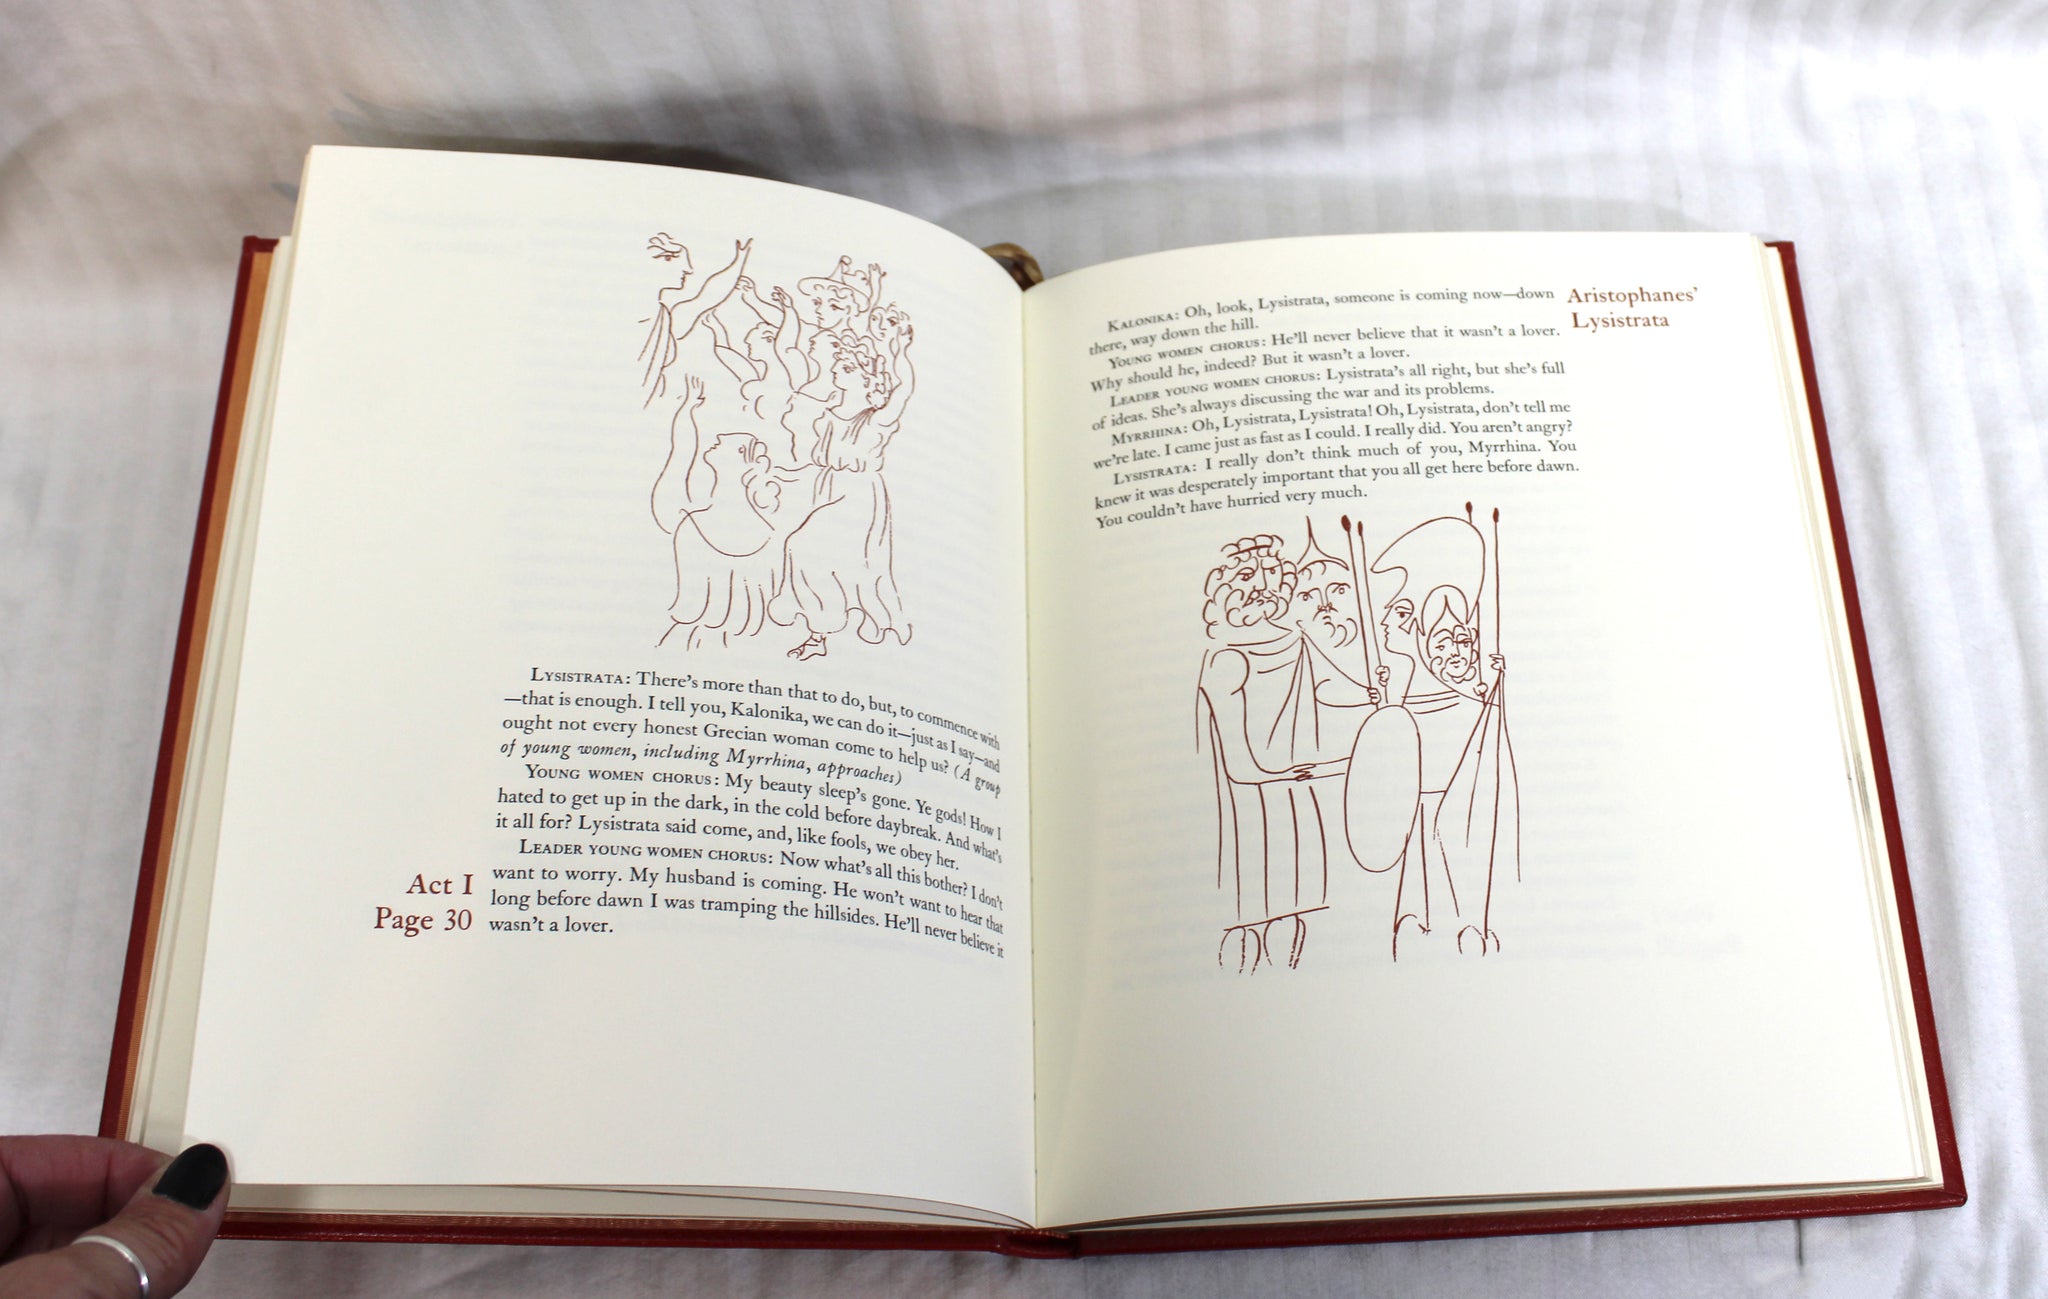 LYSISTRATA: There's more than that to do, but, to commence with
—that is enough. I tell you, Kalonika, we can do it—just as I say—and
ought not every honest Grecian woman come to help us? (A group
of young women, including Myrrhina, approaches)
YOUNG WOMEN CHORUS: My beauty sleep's gone. Ye gods! How I
hated to get up in the dark, in the cold before daybreak. And what's
it all for? Lysistrata said come, and, like fools, we obey her.
LEADER YOUNG WOMEN CHORUS: Now what's all this bother? I don't
want to worry. My husband is coming. He won't want to hear that
long before dawn I was tramping the hillsides. He'll never believe it
wasn't a lover.
Act I
Page 30
Aristophanes'
Lysistrata
KALONIKA: Oh, look, Lysistrata, someone is coming now—down
there, way down the hill.
YOUNG WOMEN CHORUS: He'll never believe that it wasn't a lover.
Why should he, indeed? But it wasn't a lover.
LEADER YOUNG WOMEN CHORUS: Lysistrata's all right, but she's full
of ideas. She's always discussing the war and its problems.
MYRRHINA: Oh, Lysistrata, Lysistrata! Oh, Lysistrata, don't tell me
we're late. I came just as fast as I could. I really did. You aren't angry?
LYSISTRATA: I really don't think much of you, Myrrhina. You
knew it was desperately important that you all get here before dawn.
You couldn't have hurried very much.